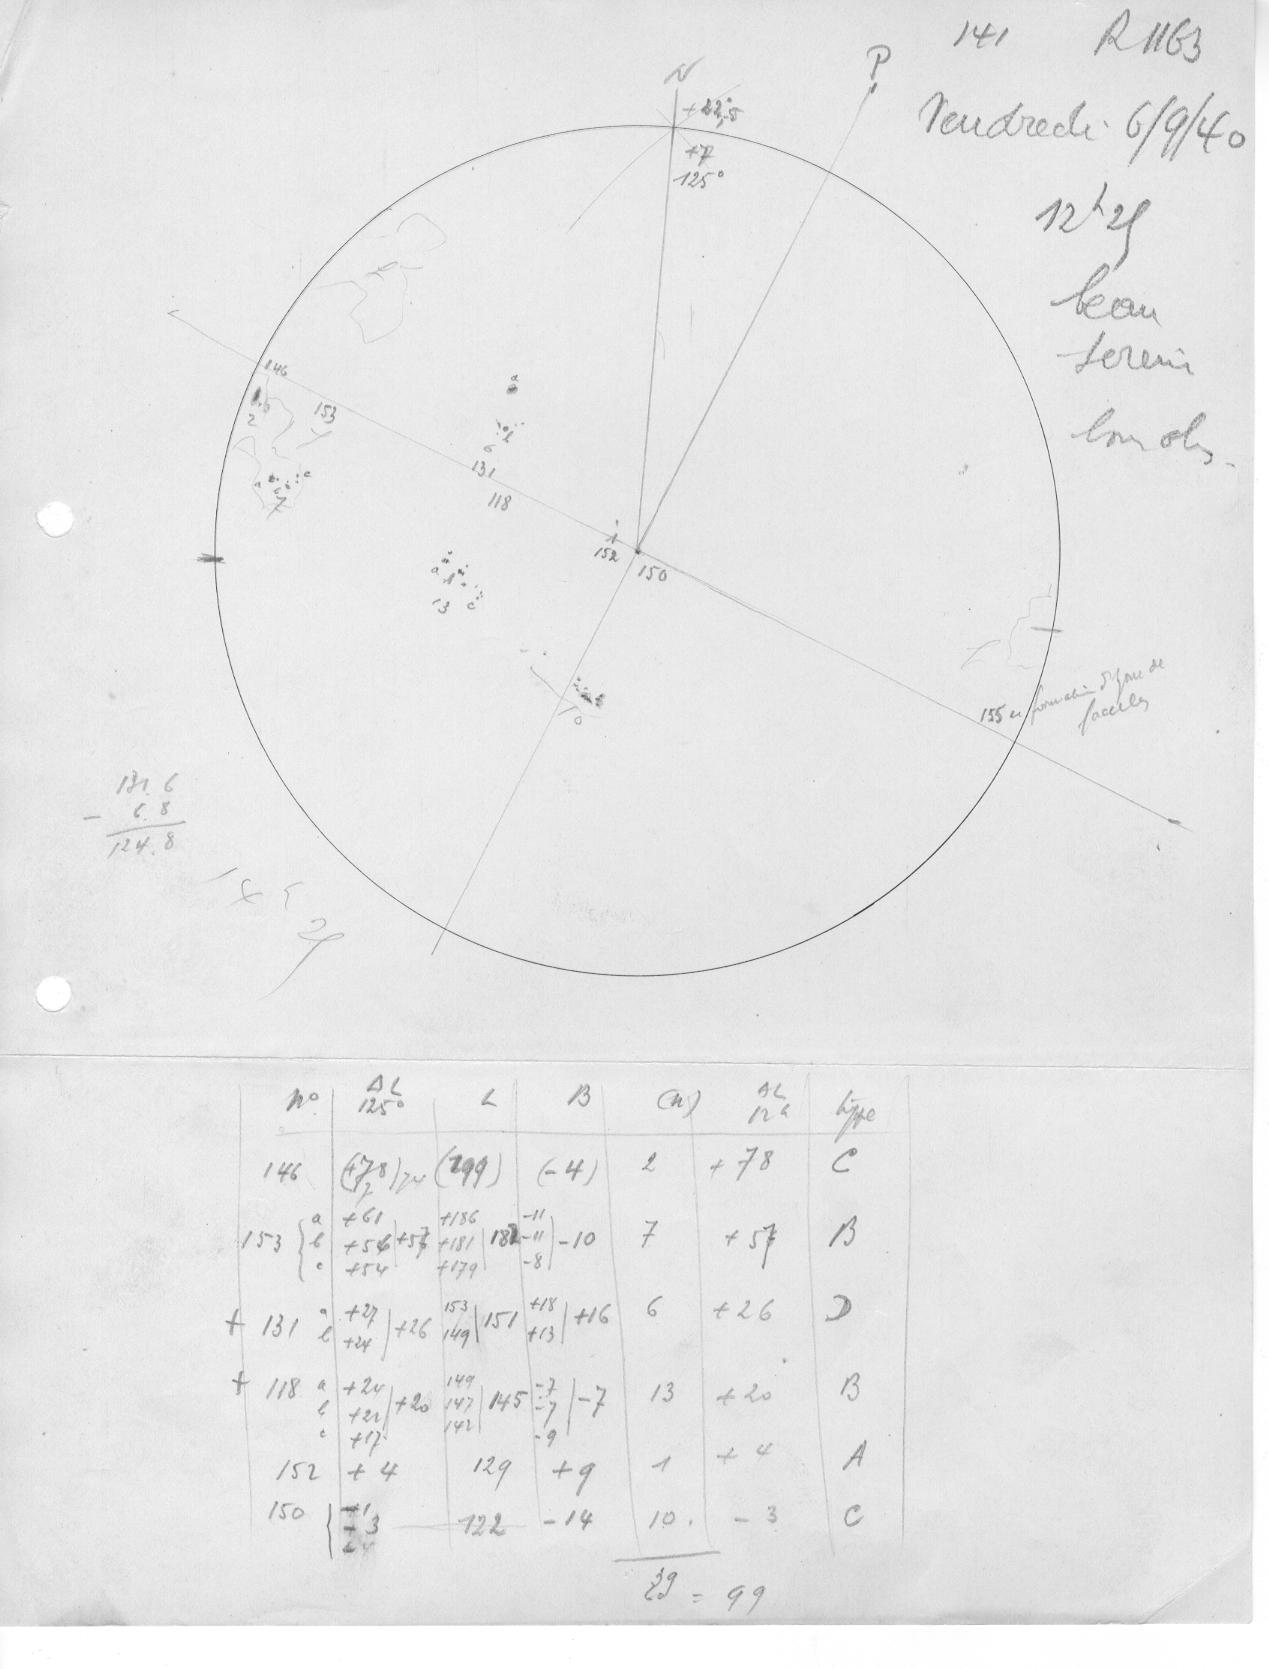 141 R1163
N P
+22,5
Vendredi 6/9/40
+7
125°
12h 25
beau
serein
146
a
153
2
b
6
131
a c
b
7
118
1
152
150
a b
13 c
10
155 en formation
facules
131.6
- 6.8
124.8
n° ΔL 125° L B (n) ΔL 12h type
146 (+78) (199) (-4) 2 +78 C
153 { a +61 +186 -11
b +56 | +57 +181 | 182 -11 | -10 7 +57 B
c +54 +179 -8
+ 131 a +27 | +26 153 | 151 +18 | +16 6 +26 D
b +24 149 +13
+ 118 a +24 | +20 149 | 145 -7 | -7 13 +20 B
b +22 147 -7
c +17 142 -9
152 +4 129 +9 1 +4 A
150 { -3 122 -14 10 -3 C
39 = 99